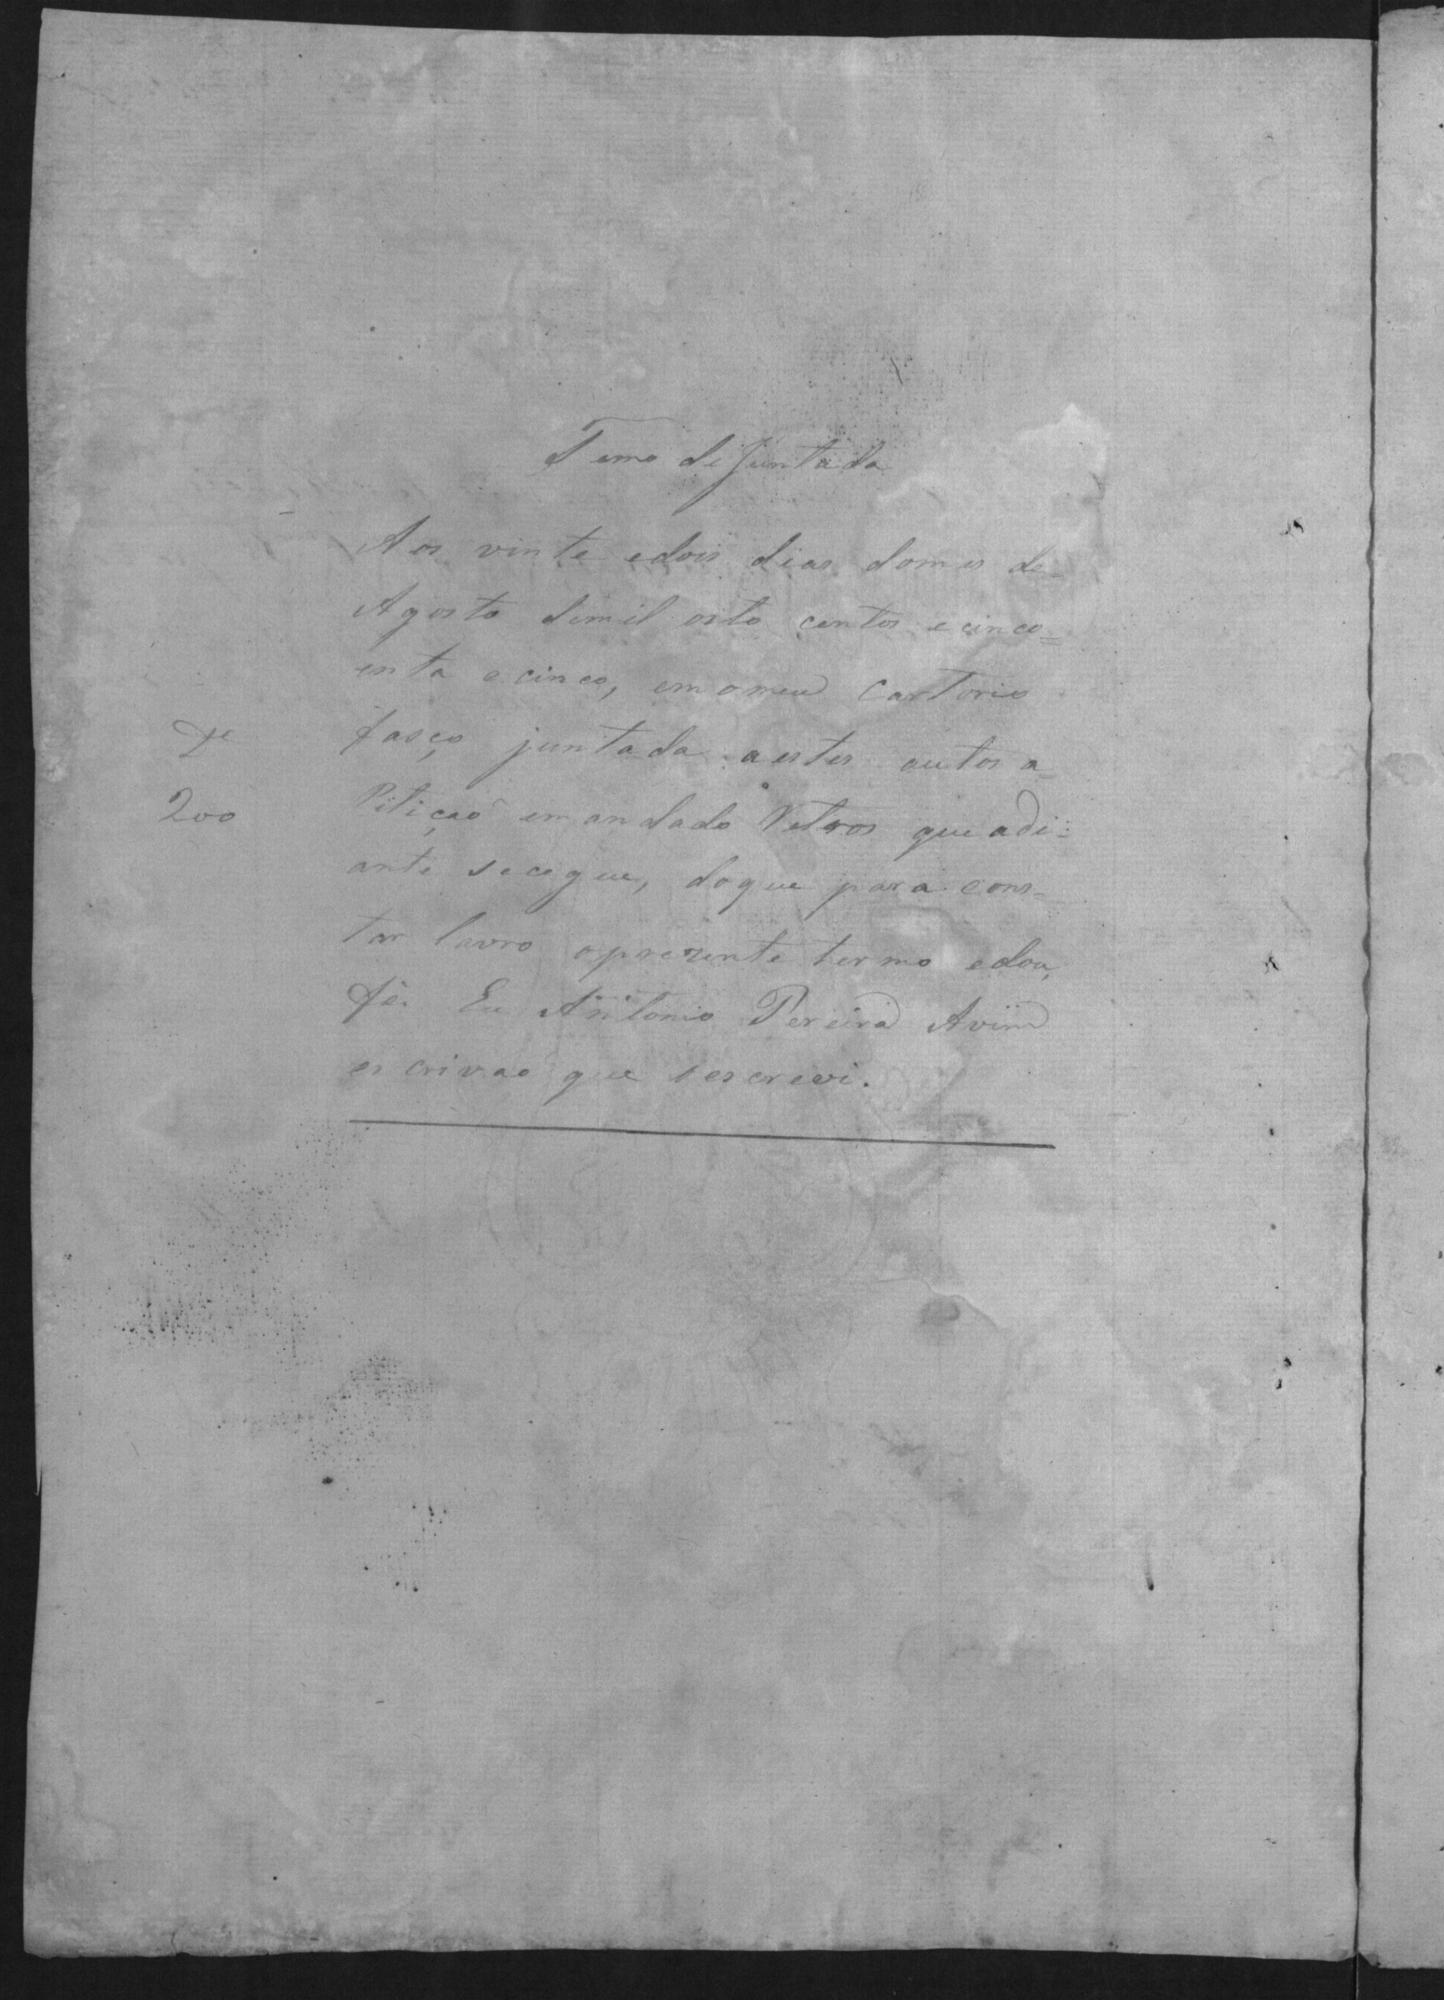 Termo de Juntada
Aos vinte edois dias domes de
Agosto demil oito centos ecinco=
enta ecinco, em omeu Cartorio
fasço juntada aestes autos a
Pitição emandado Retros que adi=
ante secegue, doque para cons=
tar lavro oprezente termo edou
fé. Eu Antonio Pereira
escrivão que escrevi.
200